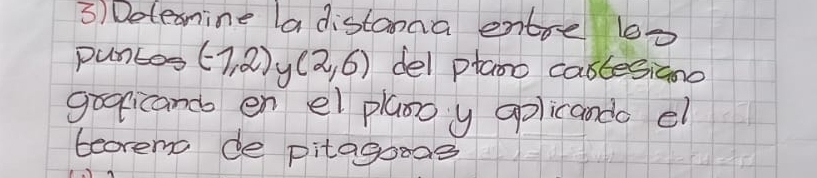 3) Determine la distancia entre los
puntos (-1,2) y (2,6) del plano cartesiano
graficando en el plano y aplicando el
teorema de pitagoras